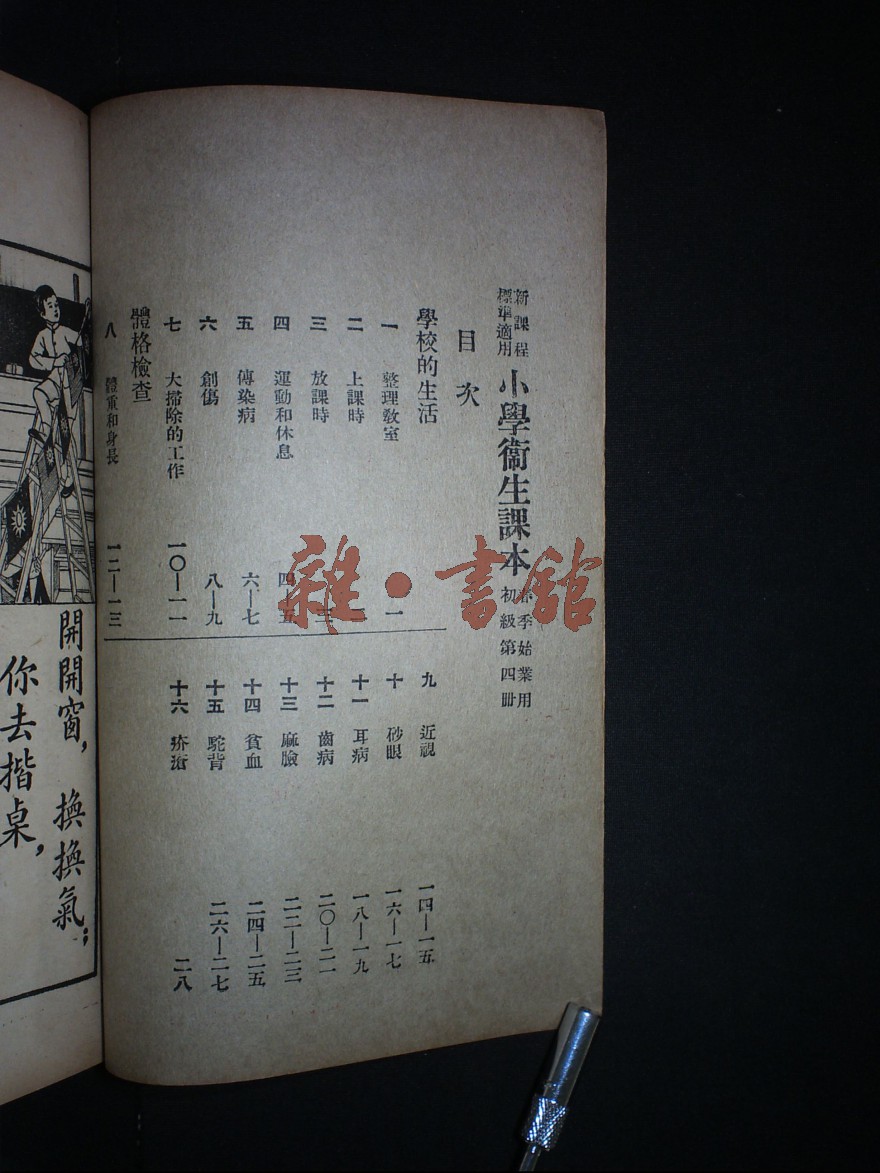 新課程
標準適用
小學衞生課本
春季始業用
初級第四冊
目次
學校的生活
一 整理教室 一
二 上課時
三 放課時
四 運動和休息 四—五
五 傳染病 六—七
六 創傷 八—九
七 大掃除的工作 一〇—一一
體格檢查
八 體重和身長 一二—一三
九 近視 一四—一五
十 砂眼 一六—一七
十一 耳病 一八—一九
十二 齒病 二〇—二一
十三 麻臉 二二—二三
十四 貧血 二四—二五
十五 駝背 二六—二七
十六 疥瘡 二八
開開窗，換換氣；
你去揩桌，
雜·書館